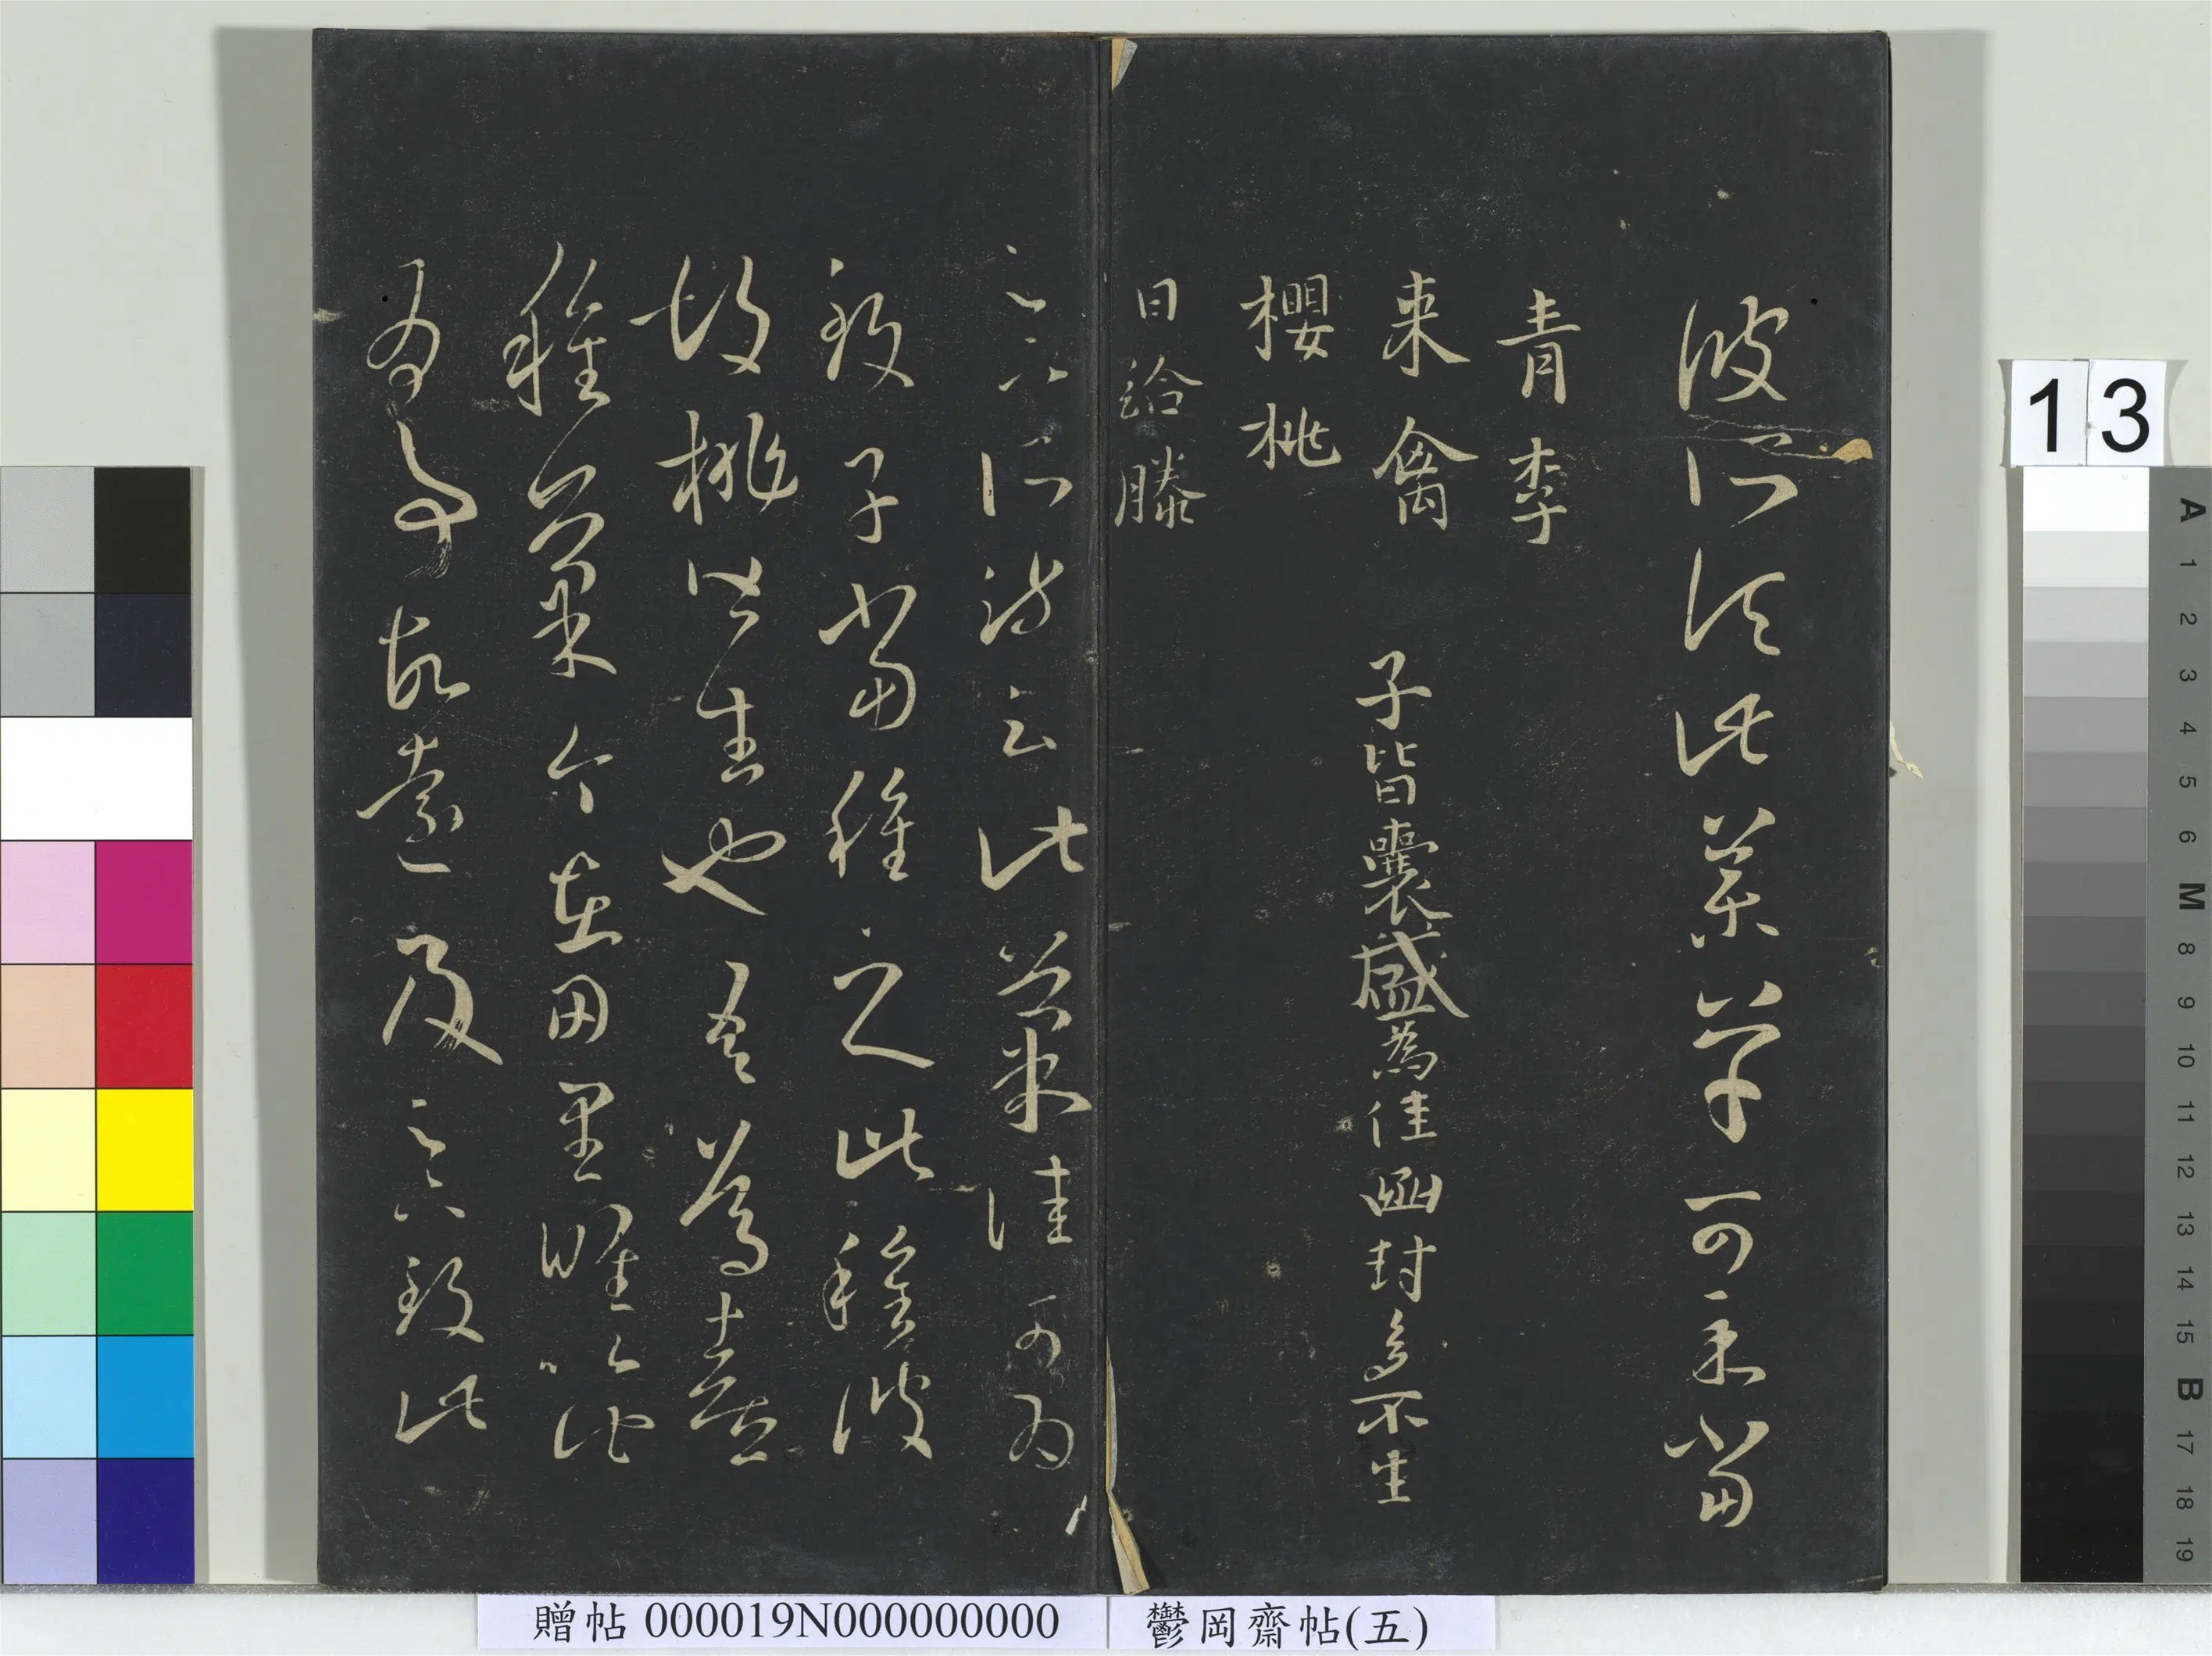 彼所須此藥草可示當
青李
来禽
櫻桃
日給滕
子皆囊盛為佳函封多不生
足下所疏云此菓佳可為
致子當種之此種彼
胡桃皆生也吾篤喜
種菓今在田里唯以此
為事故遠及足下致此
13
A 1 2 3 4 5 6 M 8 9 10 11 12 13 14 15 B 17 18 19
贈帖 000019N000000000
鬱岡齋帖(五)